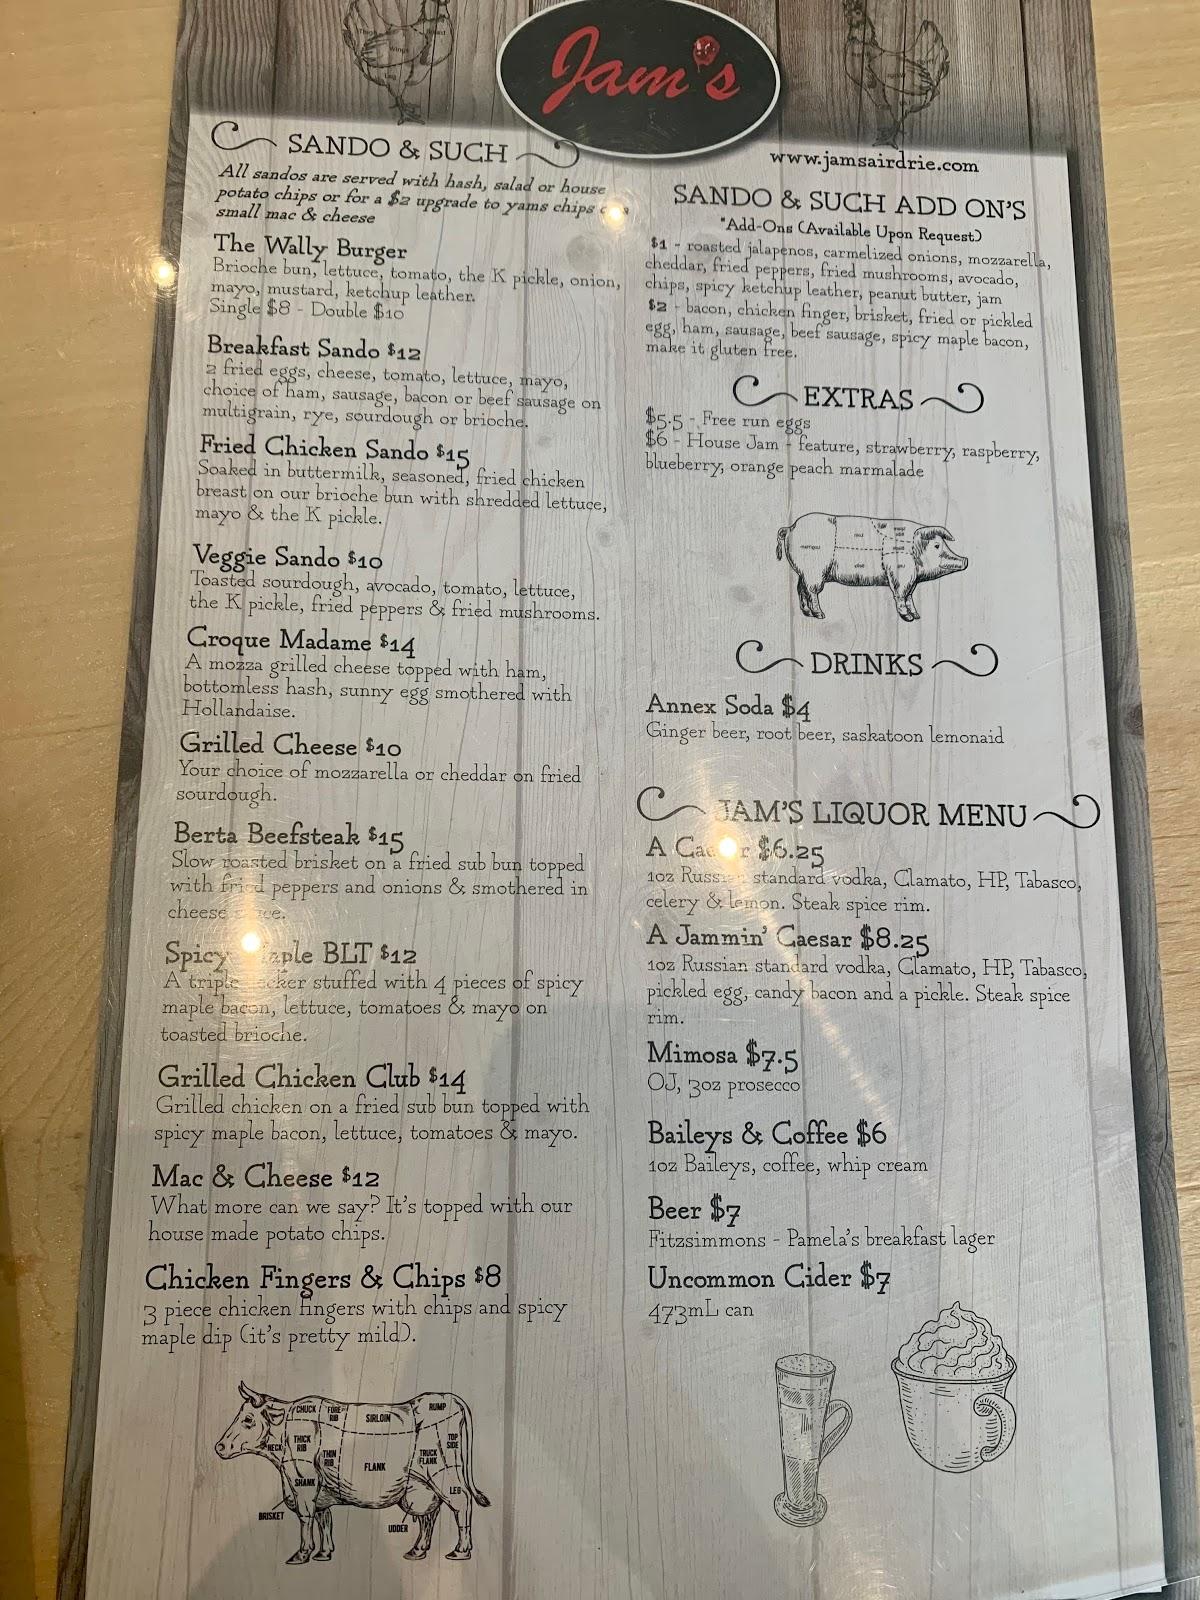 Jam's
www.jamsairdrie.com
SANDO & SUCH
All sandos are served with hash, salad or house
potato chips or for a $2 upgrade to yams chips
small mac & cheese
The Wally Burger
Brioche bun, lettuce, tomato, the K pickle, onion,
mayo, mustard, ketchup leather.
Single $8 - Double $10
Breakfast Sando $12
2 fried eggs, cheese, tomato, lettuce, mayo,
choice of ham, sausage, bacon or beef sausage on
multigrain, rye, sourdough or brioche.
Fried Chicken Sando $15
Soaked in buttermilk, seasoned, fried chicken
breast on our brioche bun with shredded lettuce,
mayo & the K pickle.
Veggie Sando $10
Toasted sourdough, avocado, tomato, lettuce,
the K pickle, fried peppers & fried mushrooms.
Croque Madame $14
A mozza grilled cheese topped with ham,
bottomless hash, sunny egg smothered with
Hollandaise.
Grilled Cheese $10
Your choice of mozzarella or cheddar on fried
sourdough.
Berta Beefsteak $15
Slow roasted brisket on a fried sub bun topped
with fried peppers and onions & smothered in
cheese
Spicy Maple BLT $12
A triple stuffed with 4 pieces of spicy
maple bacon, lettuce, tomatoes & mayo on
toasted brioche.
Grilled Chicken Club $14
Grilled chicken on a fried sub bun topped with
spicy maple bacon, lettuce, tomatoes & mayo.
Mac & Cheese $12
What more can we say? It's topped with our
house made potato chips.
Chicken Fingers & Chips $8
3 piece chicken fingers with chips and spicy
maple dip (it's pretty mild).
CHUCK
FORE
RIB
SIRLOIN
RUMP
NECK
THICK
RIB
THIN
RIB
FLANK
TRUCK
FLANK
TOP
SIDE
SHANK
LEG
BRISKET
UDDER
SANDO & SUCH ADD ON'S
*Add-Ons (Available Upon Request)
$1 - roasted jalapenos, carmelized onions, mozzarella,
cheddar, fried peppers, fried mushrooms, avocado,
chips, spicy ketchup leather, peanut butter, jam
$2 - bacon, chicken finger, brisket, fried or pickled
egg, ham, sausage, beef sausage, spicy maple bacon,
make it gluten free.
EXTRAS
$5.5 - Free run eggs
$6 - House Jam - feature, strawberry, raspberry,
blueberry, orange peach marmalade
DRINKS
Annex Soda $4
Ginger beer, root beer, saskatoon lemonaid
JAM'S LIQUOR MENU
A Caesar $6.25
1oz Russian standard vodka, Clamato, HP, Tabasco,
celery & lemon. Steak spice rim.
A Jammin' Caesar $8.25
1oz Russian standard vodka, Clamato, HP, Tabasco,
pickled egg, candy bacon and a pickle. Steak spice
rim.
Mimosa $7.5
OJ, 3oz prosecco
Baileys & Coffee $6
1oz Baileys, coffee, whip cream
Beer $7
Fitzsimmons - Pamela's breakfast lager
Uncommon Cider $7
473mL can